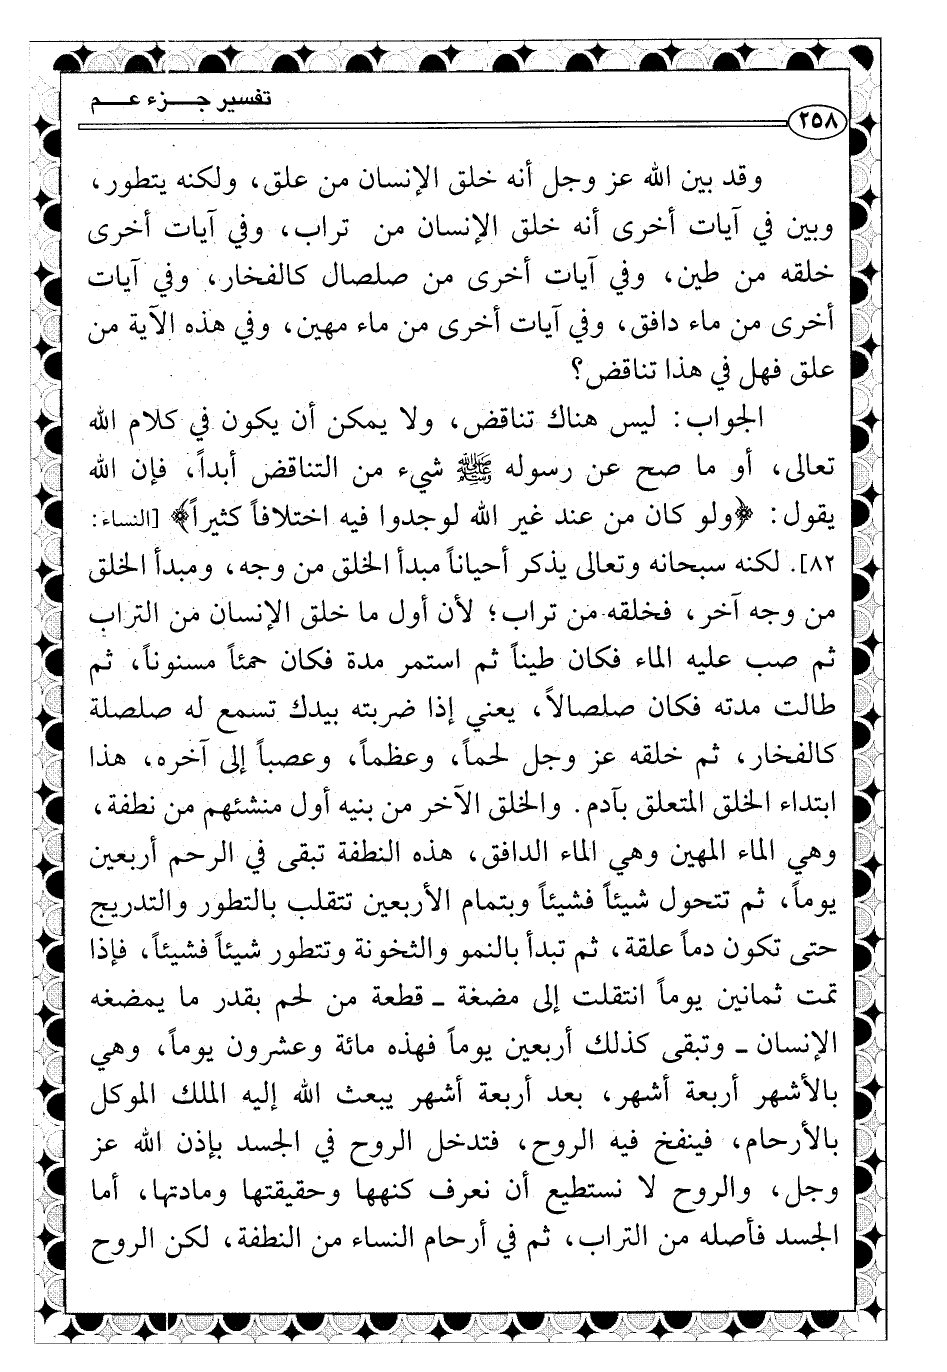 تفسير جـــزء عـــم
٢٥٨
وقد بين الله عز وجل أنه خلق الإنسان من علق، ولكنه يتطور،
وبين في آيات أخرى أنه خلق الإنسان من تراب، وفي آيات أخرى
خلقه من طين، وفي آيات أخرى من صلصال كالفخار، وفي آيات
أخرى من ماء دافق، وفي آيات أخرى من ماء مهين، وفي هذه الآية من
علق فهل في هذا تناقض؟
الجواب: ليس هناك تناقض، ولا يمكن أن يكون في كلام الله
تعالى، أو ما صح عن رسوله ﷺ شيء من التناقض أبداً، فإن الله
يقول: ﴿ولو كان من عند غير الله لوجدوا فيه اختلافاً كثيراً﴾ [النساء:
٨٢]. لكنه سبحانه وتعالى يذكر أحياناً مبدأ الخلق من وجه، ومبدأ الخلق
من وجه آخر، فخلقه من تراب؛ لأن أول ما خلق الإنسان من التراب
ثم صب عليه الماء فكان طيناً ثم استمر مدة فكان حمئاً مسنوناً، ثم
طالت مدته فكان صلصالاً، يعني إذا ضربته بيدك تسمع له صلصلة
كالفخار، ثم خلقه عز وجل لحماً، وعظماً، وعصباً إلى آخره، هذا
ابتداء الخلق المتعلق بآدم. والخلق الآخر من بنيه أول منشئهم من نطفة،
وهي الماء المهين وهي الماء الدافق، هذه النطفة تبقى في الرحم أربعين
يوماً، ثم تتحول شيئاً فشيئاً وبتمام الأربعين تتقلب بالتطور والتدريج
حتى تكون دماً علقة، ثم تبدأ بالنمو والثخونة وتتطور شيئاً فشيئاً، فإذا
تمت ثمانين يوماً انتقلت إلى مضغة ـ قطعة من لحم بقدر ما يمضغه
الإنسان ـ وتبقى كذلك أربعين يوماً فهذه مائة وعشرون يوماً، وهي
بالأشهر أربعة أشهر، بعد أربعة أشهر يبعث الله إليه الملك الموكل
بالأرحام، فينفخ فيه الروح، فتدخل الروح في الجسد بإذن الله عز
وجل، والروح لا نستطيع أن نعرف كنهها وحقيقتها ومادتها، أما
الجسد فأصله من التراب، ثم في أرحام النساء من النطفة، لكن الروح